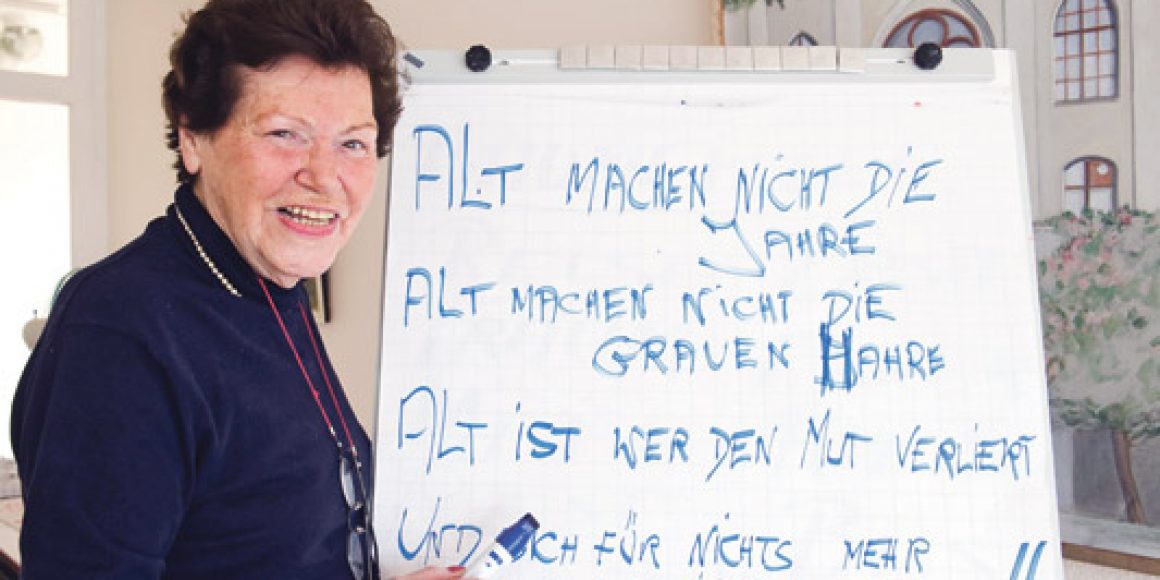 ALT MACHEN NICHT DIE
JAHRE
ALT MACHEN NICHT DIE
GRAUEN HAHRE
ALT IST WER DEN MUT VERLIERT
UND FÜR NICHTS MEHR